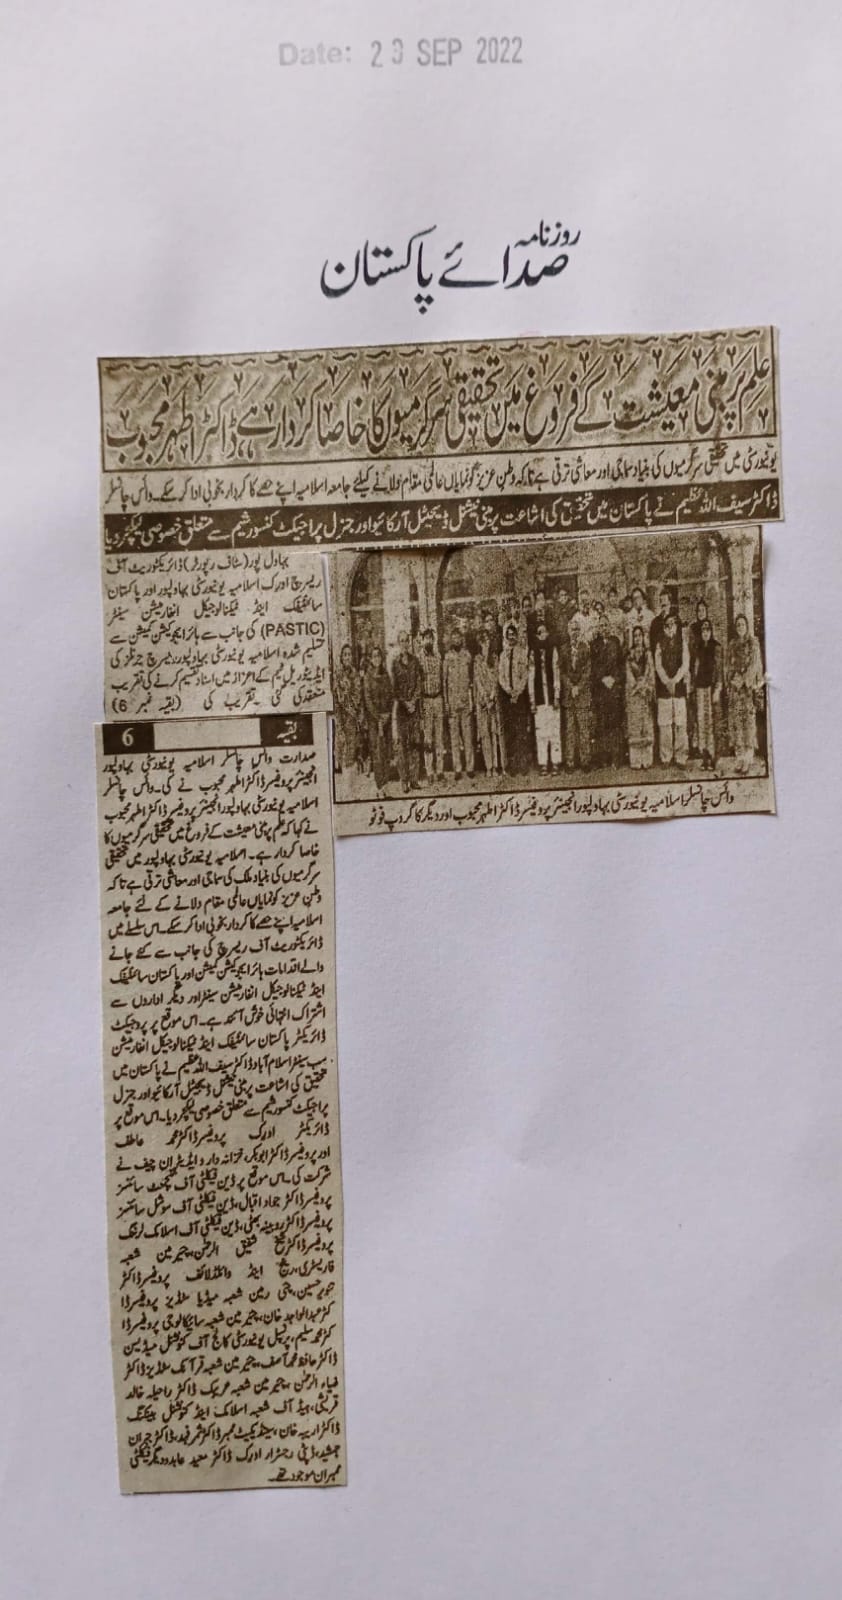 Date: 23 SEP 2022
روزنامہ
صدائے پاکستان
علم پر مبنی معیشت کے فروغ میں تحقیقی سرگرمیوں کا خاصا کردار ہے، ڈاکٹر اطہر محبوب
یونیورسٹی میں تحقیقی سرگرمیوں کی بنیاد سماجی اور معاشی ترقی ہے تاکہ وطن عزیز کو نمایاں عالمی مقام دلانے کیلئے جامعہ اسلامیہ اپنے حصے کا کردار بخوبی ادا کر سکے۔ وائس چانسلر
ڈاکٹر سیف اللہ عظیم نے پاکستان میں تحقیق کی اشاعت پر مبنی نیشنل ڈیجیٹل آرکائیو اور جنرل پراجیکٹ کنسورشیم سے متعلق خصوصی لیکچر دیا
بہاول پور (سٹاف رپورٹر) ڈائریکٹوریٹ آف
ریسرچ اورک اسلامیہ یونیورسٹی بہاولپور اور پاکستان
سائنٹیفک اینڈ ٹیکنالوجیکل انفارمیشن سینٹر
(PASTIC) کی جانب سے ہائر ایجوکیشن کمیشن سے
تسلیم شدہ اسلامیہ یونیورسٹی بہاولپور ریسرچ جرنلز کی
ایڈیٹوریل ٹیم کے اعزاز میں اسناد تقسیم کرنے کی تقریب
منعقد کی گئی۔ تقریب کی (بقیہ نمبر 6)
وائس چانسلر اسلامیہ یونیورسٹی بہاولپور انجینئر پروفیسر ڈاکٹر اطہر محبوب اور دیگر کا گروپ فوٹو
بقیہ 6
صدارت وائس چانسلر اسلامیہ یونیورسٹی بہاولپور
انجینئر پروفیسر ڈاکٹر اطہر محبوب نے کی۔ وائس چانسلر
اسلامیہ یونیورسٹی بہاولپور انجینئر پروفیسر ڈاکٹر اطہر محبوب
نے کہا کہ علم پر مبنی معیشت کے فروغ میں تحقیقی سرگرمیوں کا
خاصا کردار ہے۔ اسلامیہ یونیورسٹی بہاولپور میں تحقیقی
سرگرمیوں کی بنیاد ملک کی سماجی اور معاشی ترقی ہے تاکہ
وطن عزیز کو نمایاں عالمی مقام دلانے کے لئے جامعہ
اسلامیہ اپنے حصے کا کردار بخوبی ادا کر سکے۔ اس سلسلے میں
ڈائریکٹوریٹ آف ریسرچ کی جانب سے کئے جانے
والے اقدامات ہائر ایجوکیشن کمیشن اور پاکستان سائنٹیفک
اینڈ ٹیکنالوجیکل انفارمیشن سینٹر اور دیگر اداروں سے
اشتراک انتہائی خوش آئند ہے۔ اس موقع پر پروجیکٹ
ڈائریکٹر پاکستان سائنٹیفک اینڈ ٹیکنالوجیکل انفارمیشن
سب سینٹر اسلام آباد ڈاکٹر سیف اللہ عظیم نے پاکستان میں
تحقیق کی اشاعت پر مبنی نیشنل ڈیجیٹل آرکائیو اور جنرل
پراجیکٹ کنسورشیم سے متعلق خصوصی لیکچر دیا۔ اس موقع پر
ڈائریکٹر اورک پروفیسر ڈاکٹر محمد عاطف
اور پروفیسر ڈاکٹر ابوبکر، خزانہ دار و ایڈیٹر ان چیف نے
شرکت کی۔ اس موقع پر ڈین فیکلٹی آف مینجمنٹ سائنسز
پروفیسر ڈاکٹر جواد اقبال، ڈین فیکلٹی آف سوشل سائنسز
پروفیسر ڈاکٹر روبینہ بھٹی، ڈین فیکلٹی آف اسلامک لرننگ
پروفیسر ڈاکٹر شیخ شفیق الرحمن، چیئرمین شعبہ
فارسٹری، رینج اینڈ وائلڈ لائف پروفیسر ڈاکٹر
تنویر حسین، چئیرمین شعبہ میڈیا سٹڈیز پروفیسر ڈا
کٹر عبدالواجد خان، چیئرمین شعبہ سائیکالوجی پروفیسر ڈا
کٹر محمد سلیم، پرنسپل یونیورسٹی کالج آف کنونشنل میڈیسن
ڈاکٹر حافظ محمد آصف، چیئرمین شعبہ قرآنک سٹڈیز ڈاکٹر
ضیاء الرحمن، چیئرمین شعبہ عربک ڈاکٹر راحیلہ خالد
قریشی، ہیڈ آف شعبہ اسلامک اینڈ کنونشنل بینکنگ
ڈاکٹر اریبہ خان، سینڈیکیٹ ممبر ڈاکٹر ثمر فہد، ڈاکٹر جبران
جمشید، ڈپٹی رجسٹرار اورک ڈاکٹر سعید عابد و دیگر فیکلٹی
ممبران موجود تھے۔